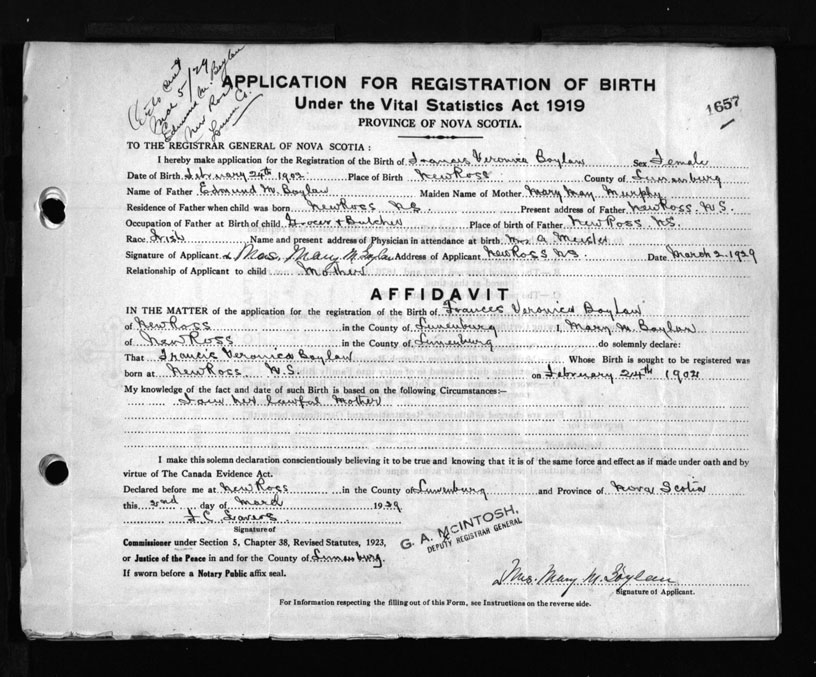 Mar 5/29
Edmund M. Boylan
New Ross
Lun. Co.
APPLICATION FOR REGISTRATION OF BIRTH
Under the Vital Statistics Act 1919
1657
PROVINCE OF NOVA SCOTIA.
TO THE REGISTRAR GENERAL OF NOVA SCOTIA :
I hereby make application for the Registration of the Birth of Francis Veronica Boylan Sex Female
Date of Birth February 24th 1902 Place of Birth New Ross County of Lunenburg
Name of Father Edmund M. Boylan Maiden Name of Mother Mary May Murphy
Residence of Father when child was born New Ross N.S. Present address of Father New Ross N.S.
Occupation of Father at Birth of child Grocer & Butcher Place of birth of Father New Ross N.S.
Race Irish Name and present address of Physician in attendance at birth Mrs A Meister
Signature of Applicant Mrs. Mary M. Boylan Address of Applicant New Ross N S Date March 2 1929
Relationship of Applicant to child Mother
AFFIDAVIT
IN THE MATTER of the application for the registration of the Birth of Frances Veronica Boylan
of New Ross in the County of Lunenburg I, Mary M. Boylan
of New Ross in the County of Lunenburg do solemnly declare:
That Francis Veronica Boylan Whose Birth is sought to be registered was
born at New Ross N.S. on February 24th 1902
My knowledge of the fact and date of such Birth is based on the following Circumstances:—
I am her lawful Mother
I make this solemn declaration conscientiously believing it to be true and knowing that it is of the same force and effect as if made under oath and by
virtue of The Canada Evidence Act.
Declared before me at New Ross in the County of Lunenburg and Province of Nova Scotia
this 2nd day of March 1929
Signature of
Commissioner under Section 5, Chapter 38, Revised Statutes, 1923,
G. A. McINTOSH,
DEPUTY REGISTRAR GENERAL
or Justice of the Peace in and for the County of Lunenburg.
If sworn before a Notary Public affix seal.
Mrs. Mary M. Boylan
Signature of Applicant.
For Information respecting the filling out of this Form, see Instructions on the reverse side.